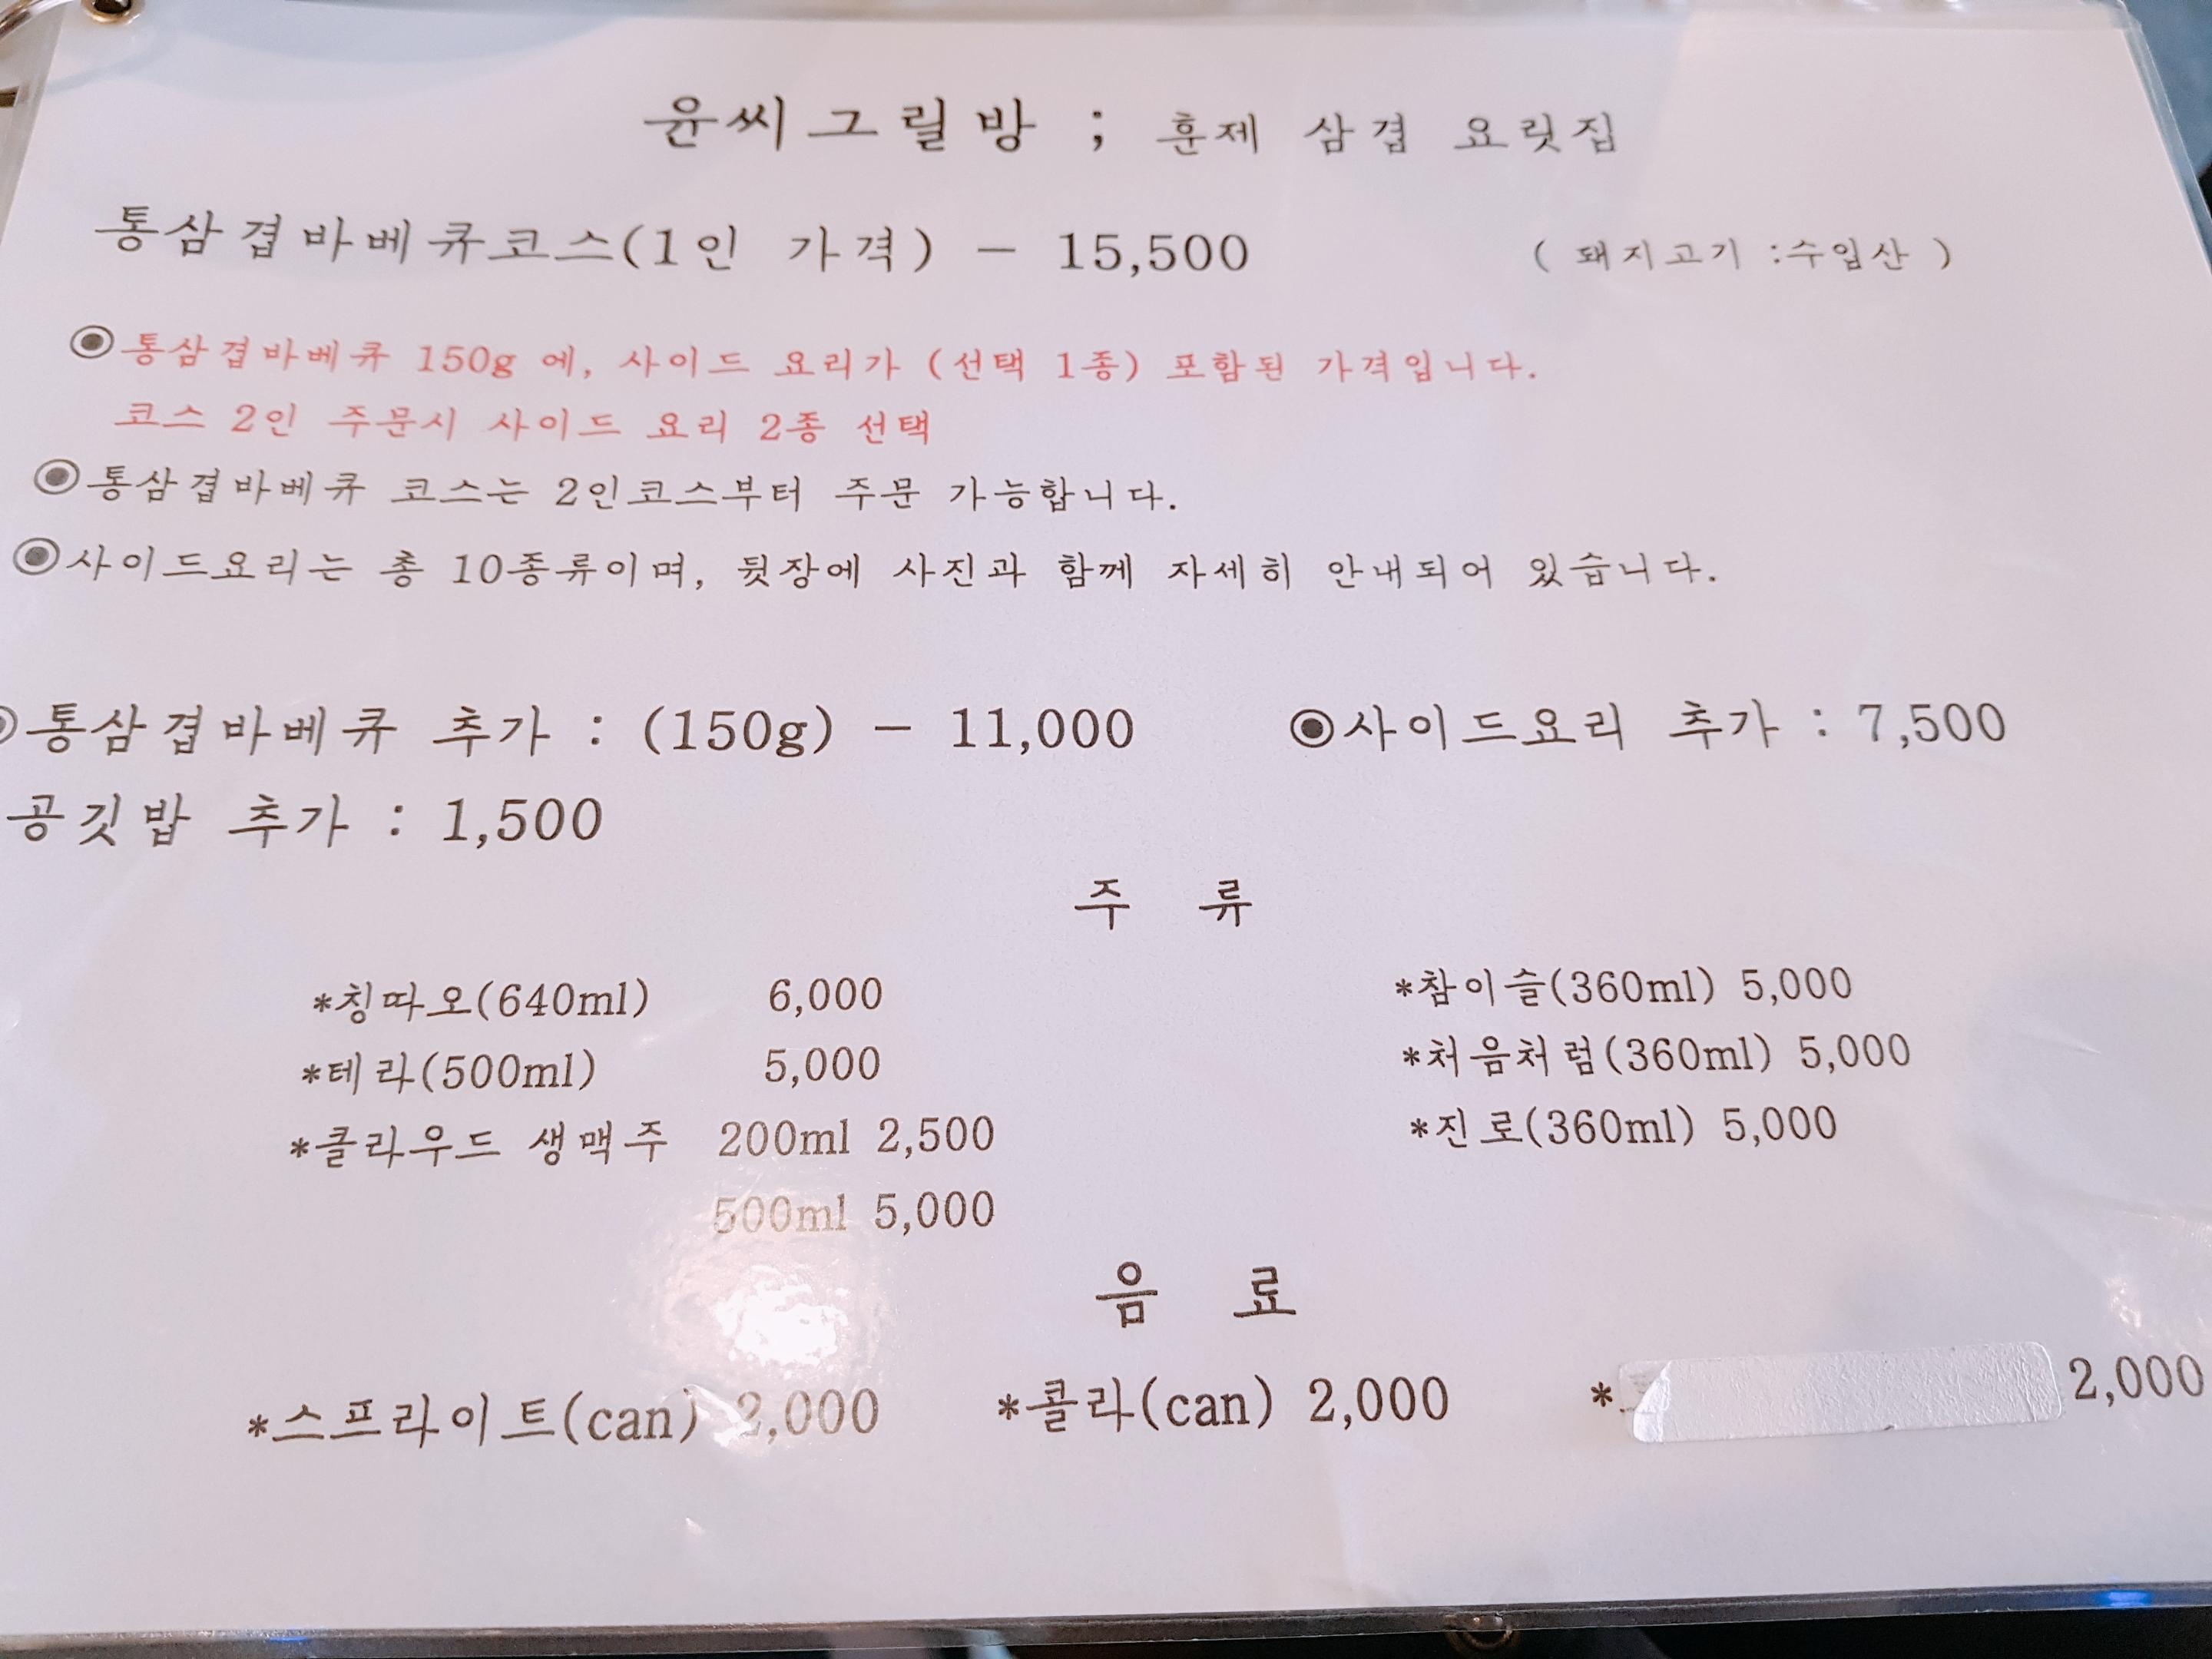 윤씨그릴방 ; 훈제 삼겹 요릿집
통삼겹바베큐코스(1인 가격) - 15,500 ( 돼지고기 :수입산 )
◉통삼겹바베큐 150g 에, 사이드 요리가 (선택 1종) 포함된 가격입니다.
코스 2인 주문시 사이드 요리 2종 선택
◉통삼겹바베큐 코스는 2인코스부터 주문 가능합니다.
◉사이드요리는 총 10종류이며, 뒷장에 사진과 함께 자세히 안내되어 있습니다.
◉통삼겹바베큐 추가 : (150g) - 11,000 ◉사이드요리 추가 : 7,500
공깃밥 추가 : 1,500
주 류
*칭따오(640ml) 6,000 *참이슬(360ml) 5,000
*테라(500ml) 5,000 *처음처럼(360ml) 5,000
*클라우드 생맥주 200ml 2,500 *진로(360ml) 5,000
500ml 5,000
음 료
*스프라이트(can) 2,000 *콜라(can) 2,000 * 2,000